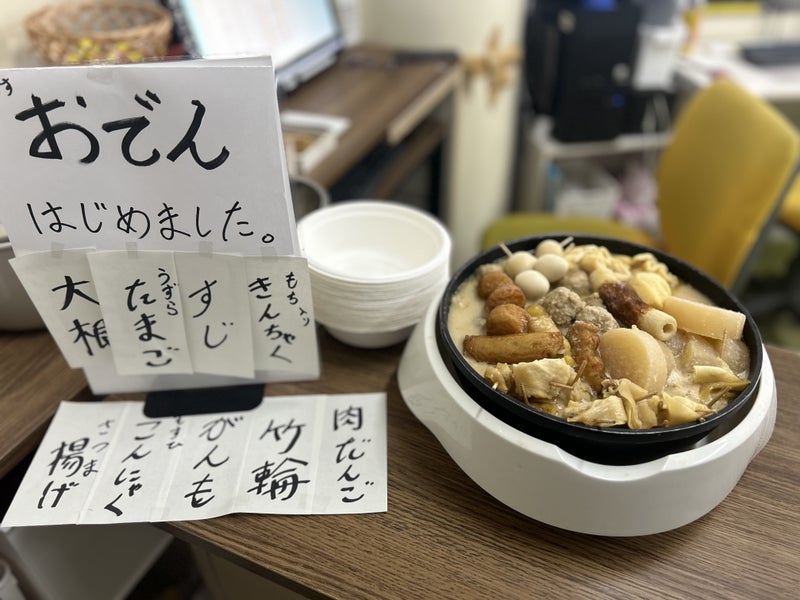 す
おでん
はじめました。
もち入り
きんちゃく
すじ
うずら
たまご
大根
肉だんご
竹輪
がんも
むすび
こんにゃく
さつま
揚げ